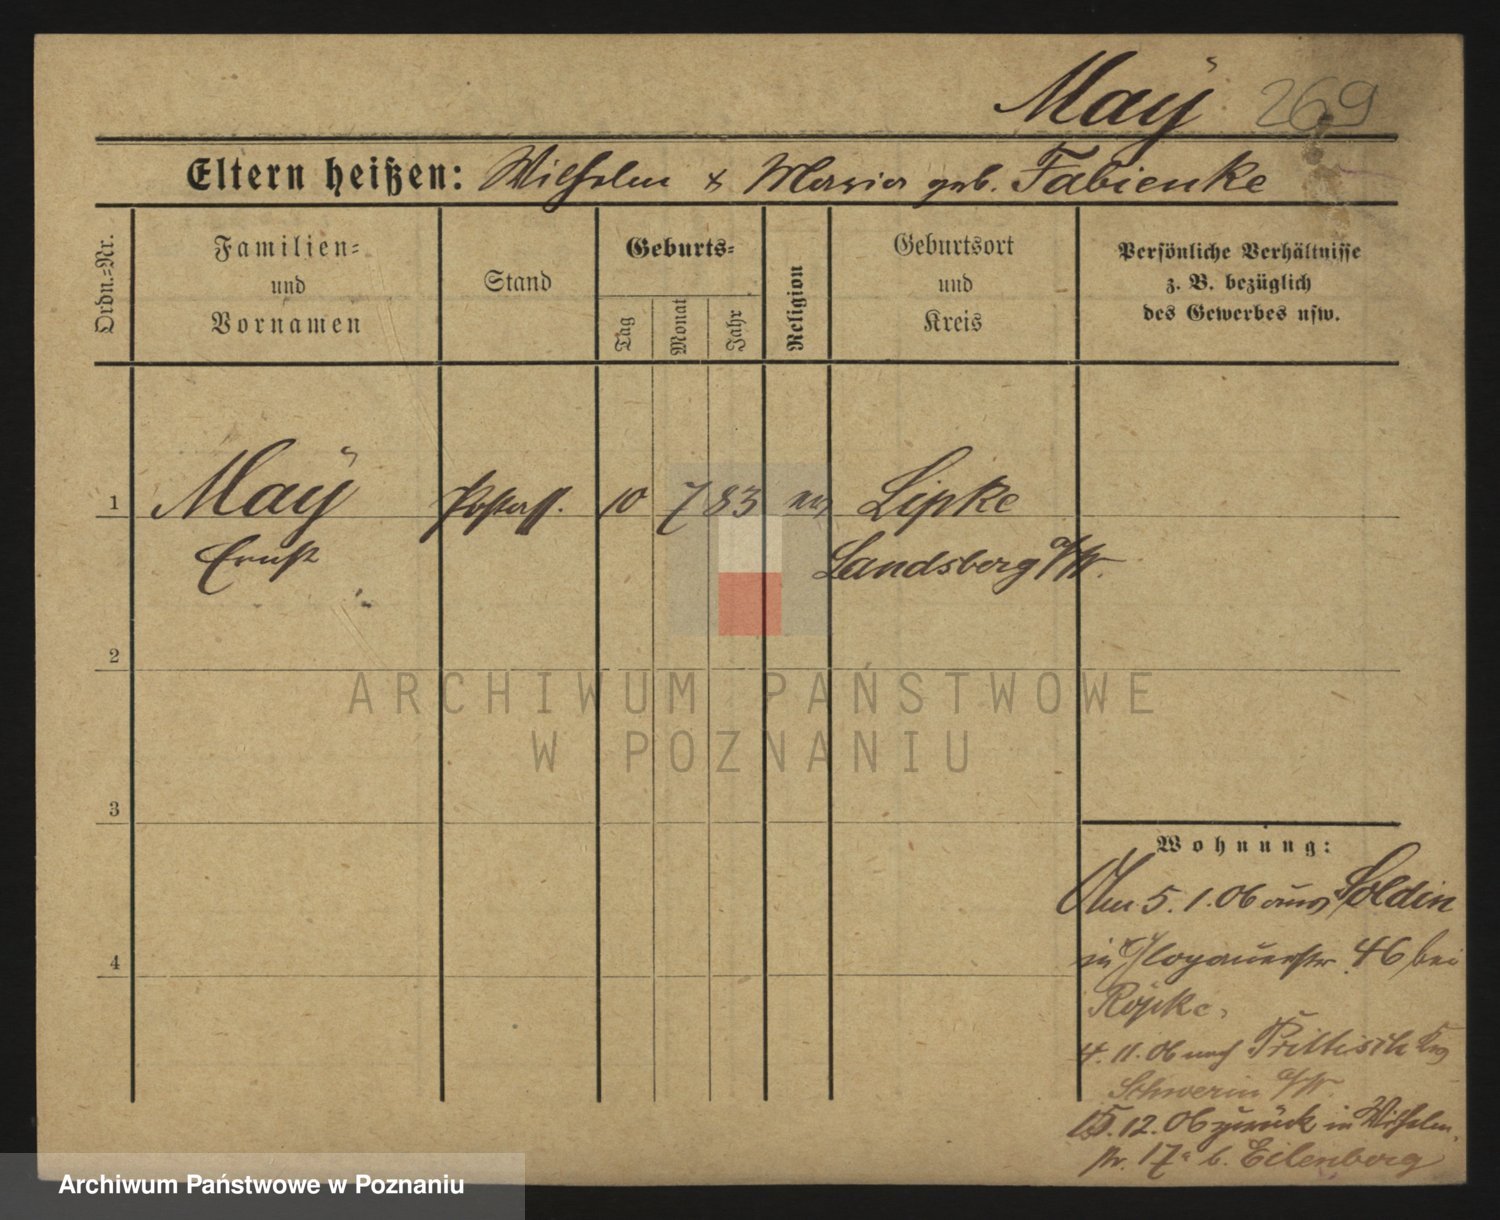 Maÿ 269
Eltern heißen: Wilhelm & Maria geb. Fabienke
Ordn.-Nr.
Familien-
und
Vornamen
Stand
Geburts-
Tag
Monat
Jahr
Religion
Geburtsort
und
Kreis
Persönliche Verhältnisse
z. B. bezüglich
des Gewerbes usw.
1 Maÿ 10 7 83 Lipke
Ernst Landsberg a/W.
2
ARCHIWUM PAŃSTWOWE
W POZNANIU
3
Wohnung:
Am 5. 1. 06 aus Soldin
in Glogauerstr. 46 bei
Röpke,
4. 11. 06 nach Prittisch Krs
Schwerin a/W.
15. 12. 06 zurück in Wilhelm
str. 17a b. Eilenberg
4
Archiwum Państwowe w Poznaniu